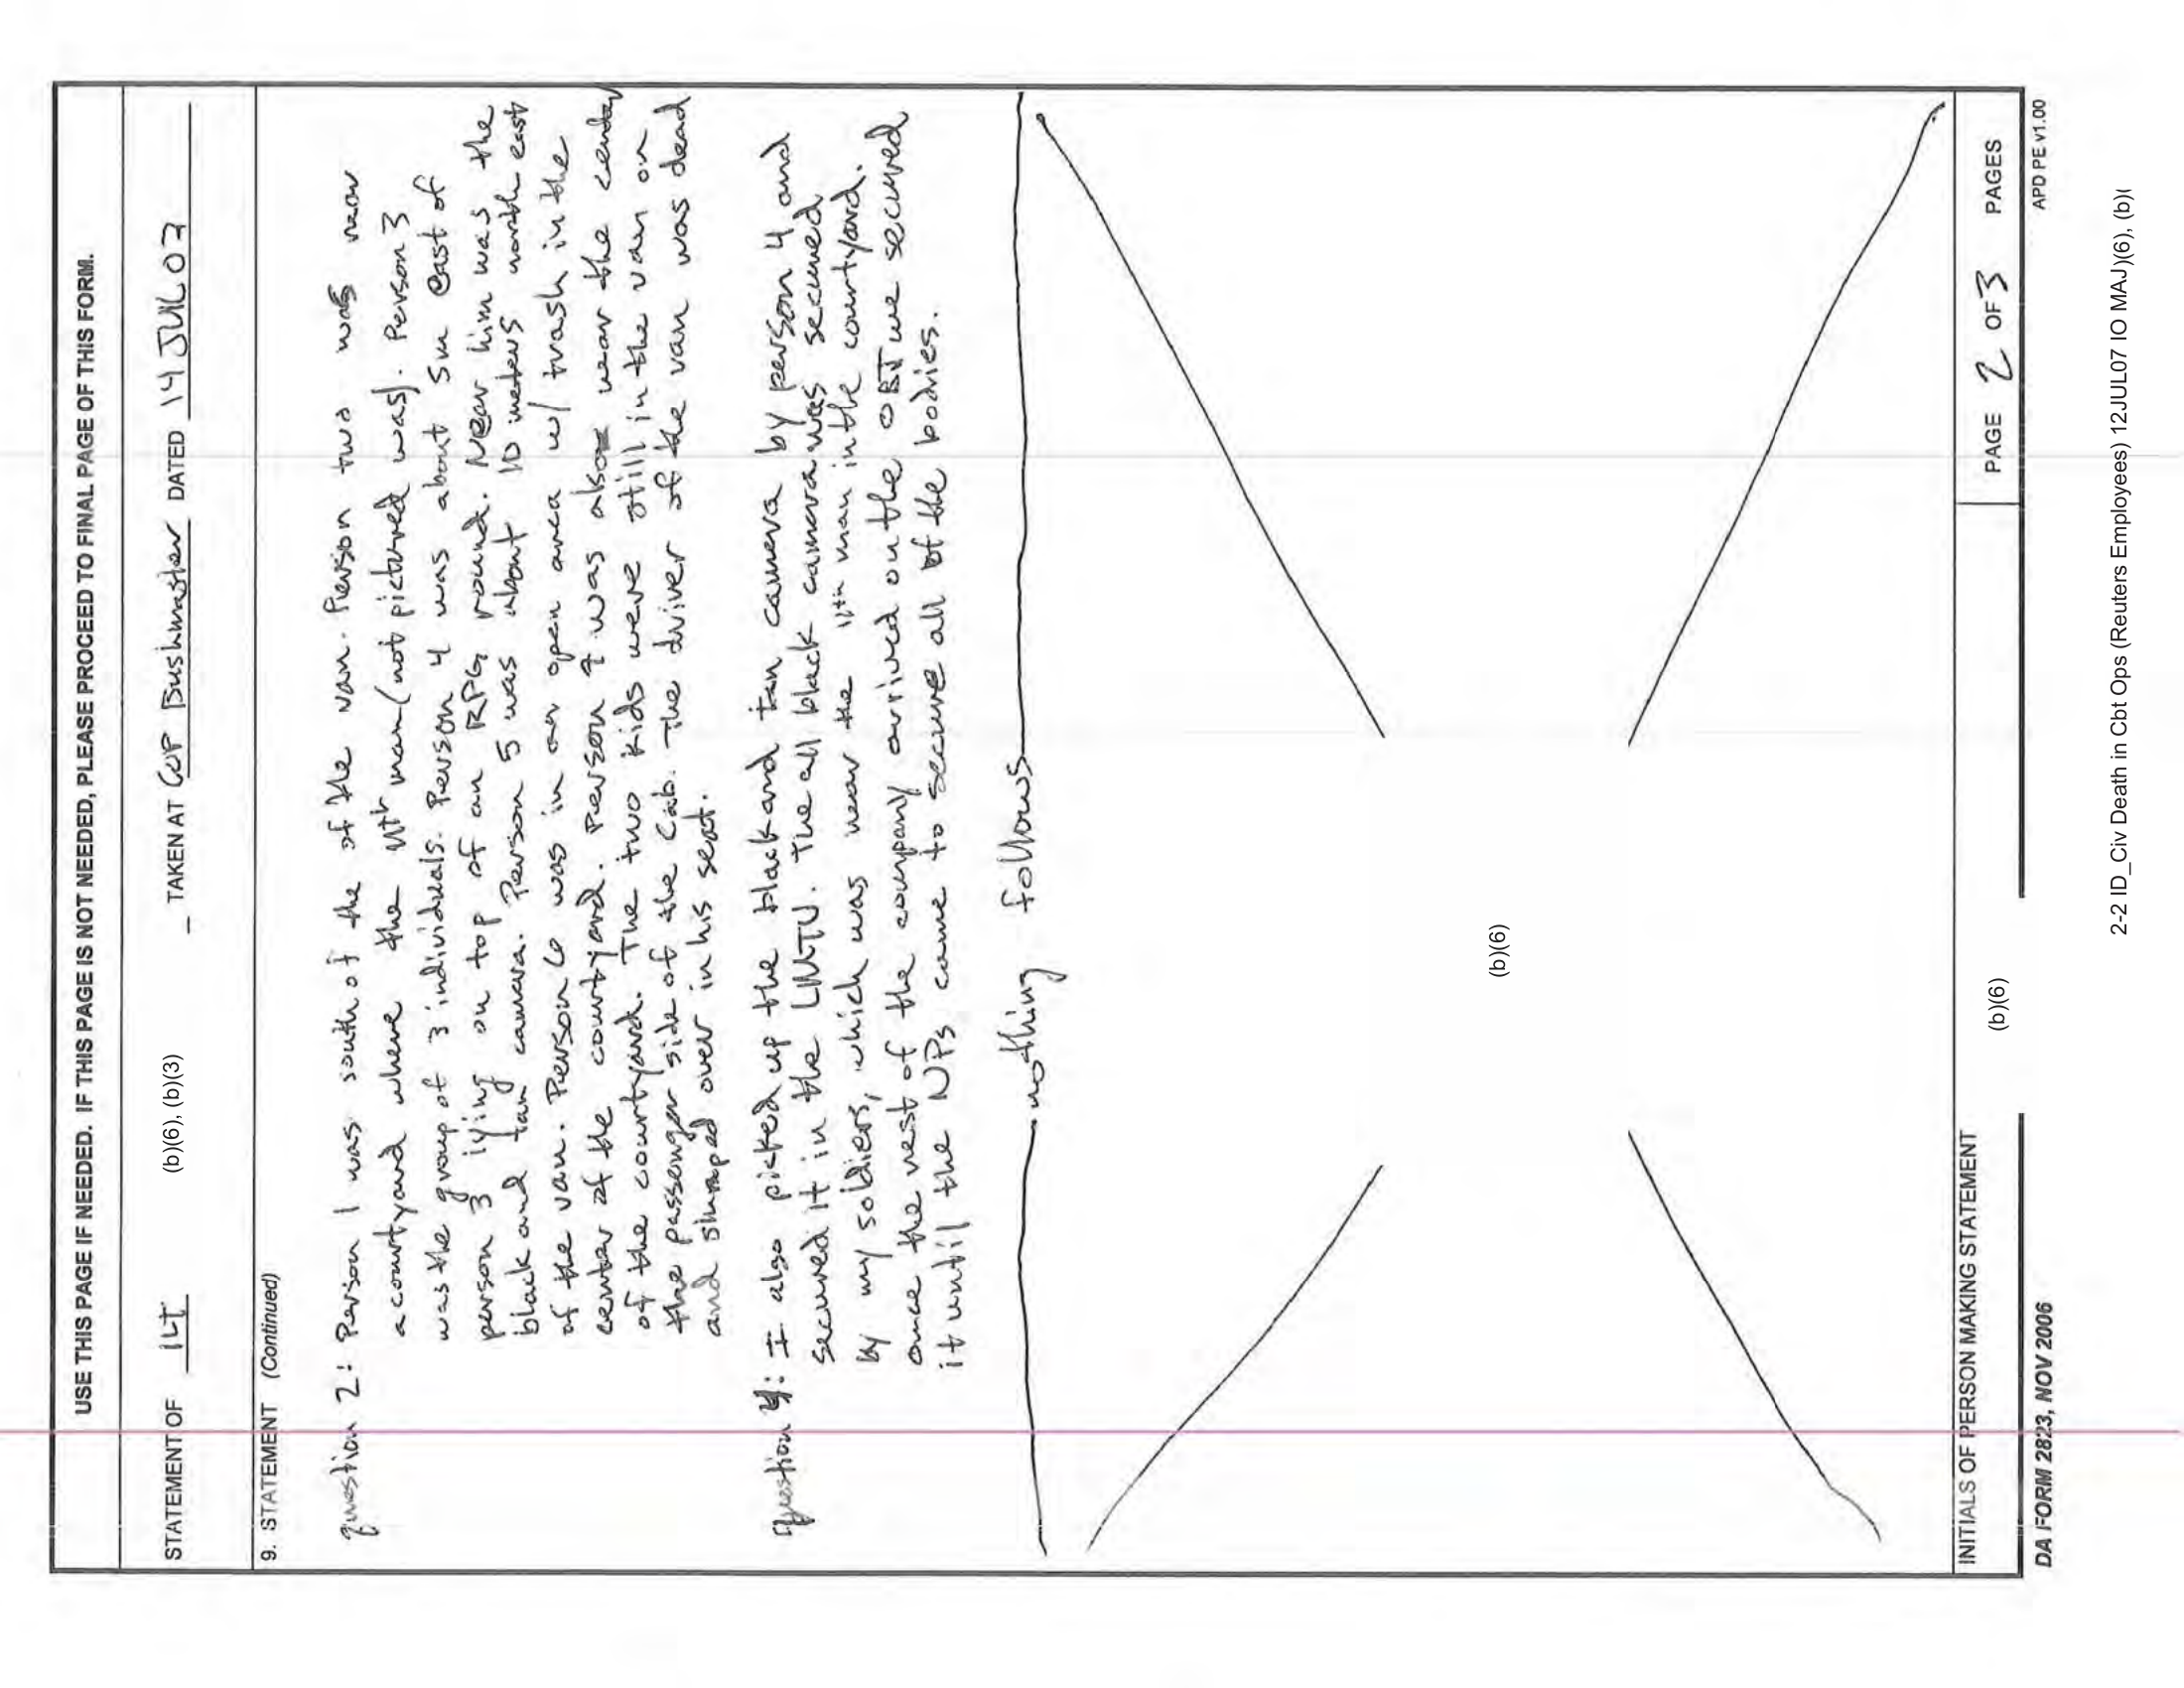 USE THIS PAGE IF NEEDED. IF THIS PAGE IS NOT NEEDED, PLEASE PROCEED TO FINAL PAGE OF THIS FORM.
STATEMENT OF 1LT (b)(6), (b)(3) TAKEN AT COP Bushmaster DATED 14 JUL 07
9. STATEMENT (Continued)
question 2: Person 1 was south of the of the van. Person two was near
a courtyard where the 11th man (not pictured was). Person 3
was the group of 3 individuals. Person 4 was about 5m east of
person 3 lying on top of an RPG round. Near him was the
black and tan camara. Person 5 was about 10 meters north east
of the van. Person 6 was in an open area w/ trash in the
center of the courtyard. Person 7 was also near the center
of the courtyard. The two kids were still in the van on
the passenger side of the cab. The driver of the van was dead
and slumped over in his seat.
question 4: I also picked up the black and tan camera by person 4 and
secured it in the LMTV. The all black camera was secured
by my soldiers, which was near the 11th man in the courtyard.
Once the rest of the company arrived on the OBJ we secured
it until the NPs came to secure all of the bodies.
nothing follows
(b)(6)
INITIALS OF PERSON MAKING STATEMENT (b)(6) PAGE 2 OF 3 PAGES
DA FORM 2823, NOV 2006 APD PE v1.00
2-2 ID_Civ Death in Cbt Ops (Reuters Employees) 12JUL07 IO MAJ)(6), (b)(